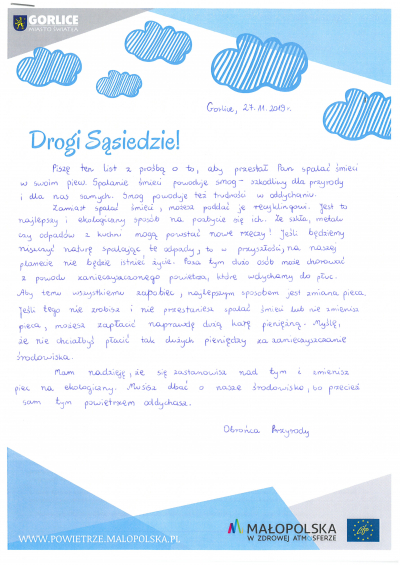 GORLICE
MIASTO ŚWIATŁA
Gorlice, 27.11.2019r.
Drogi Sąsiedzie!
Piszę ten list z prośbą o to, aby przestał Pan spalać śmieci
w swoim piecu. Spalanie śmieci powoduje smog - szkodliwy dla przyrody
i dla nas samych. Smog powoduje też trudności w oddychaniu.
Zamiast spalać śmieci, możesz poddać je recyklingowi. Jest to
najlepszy i ekologiczny sposób na pozbycie się ich. Ze szkła, metalu
czy odpadów z kuchni mogą powstać nowe rzeczy! Jeśli będziemy
niszczyć naturę spalając te odpady, to w przyszłości, na naszej
planecie nie będzie istnieć życie. Poza tym dużo osób może chorować
z powodu zanieczyszczonego powietrza, które wdychamy do płuc.
Aby temu wszystkiemu zapobiec, najlepszym sposobem jest zmiana pieca.
Jeśli tego nie zrobisz i nie przestaniesz spalać śmieci lub nie zmienisz
pieca, możesz zapłacić naprawdę dużą karę pieniężną. Myślę,
że nie chciałbyś płacić tak dużych pieniędzy za zanieczyszczanie
środowiska.
Mam nadzieję, że się zastanowisz nad tym i zmienisz
piec na ekologiczny. Musisz dbać o nasze środowisko, bo przecież
sam tym powietrzem oddychasz.
Obrońca Przyrody
WWW.POWIETRZE.MALOPOLSKA.PL
MAŁOPOLSKA
W ZDROWEJ ATMOSFERZE